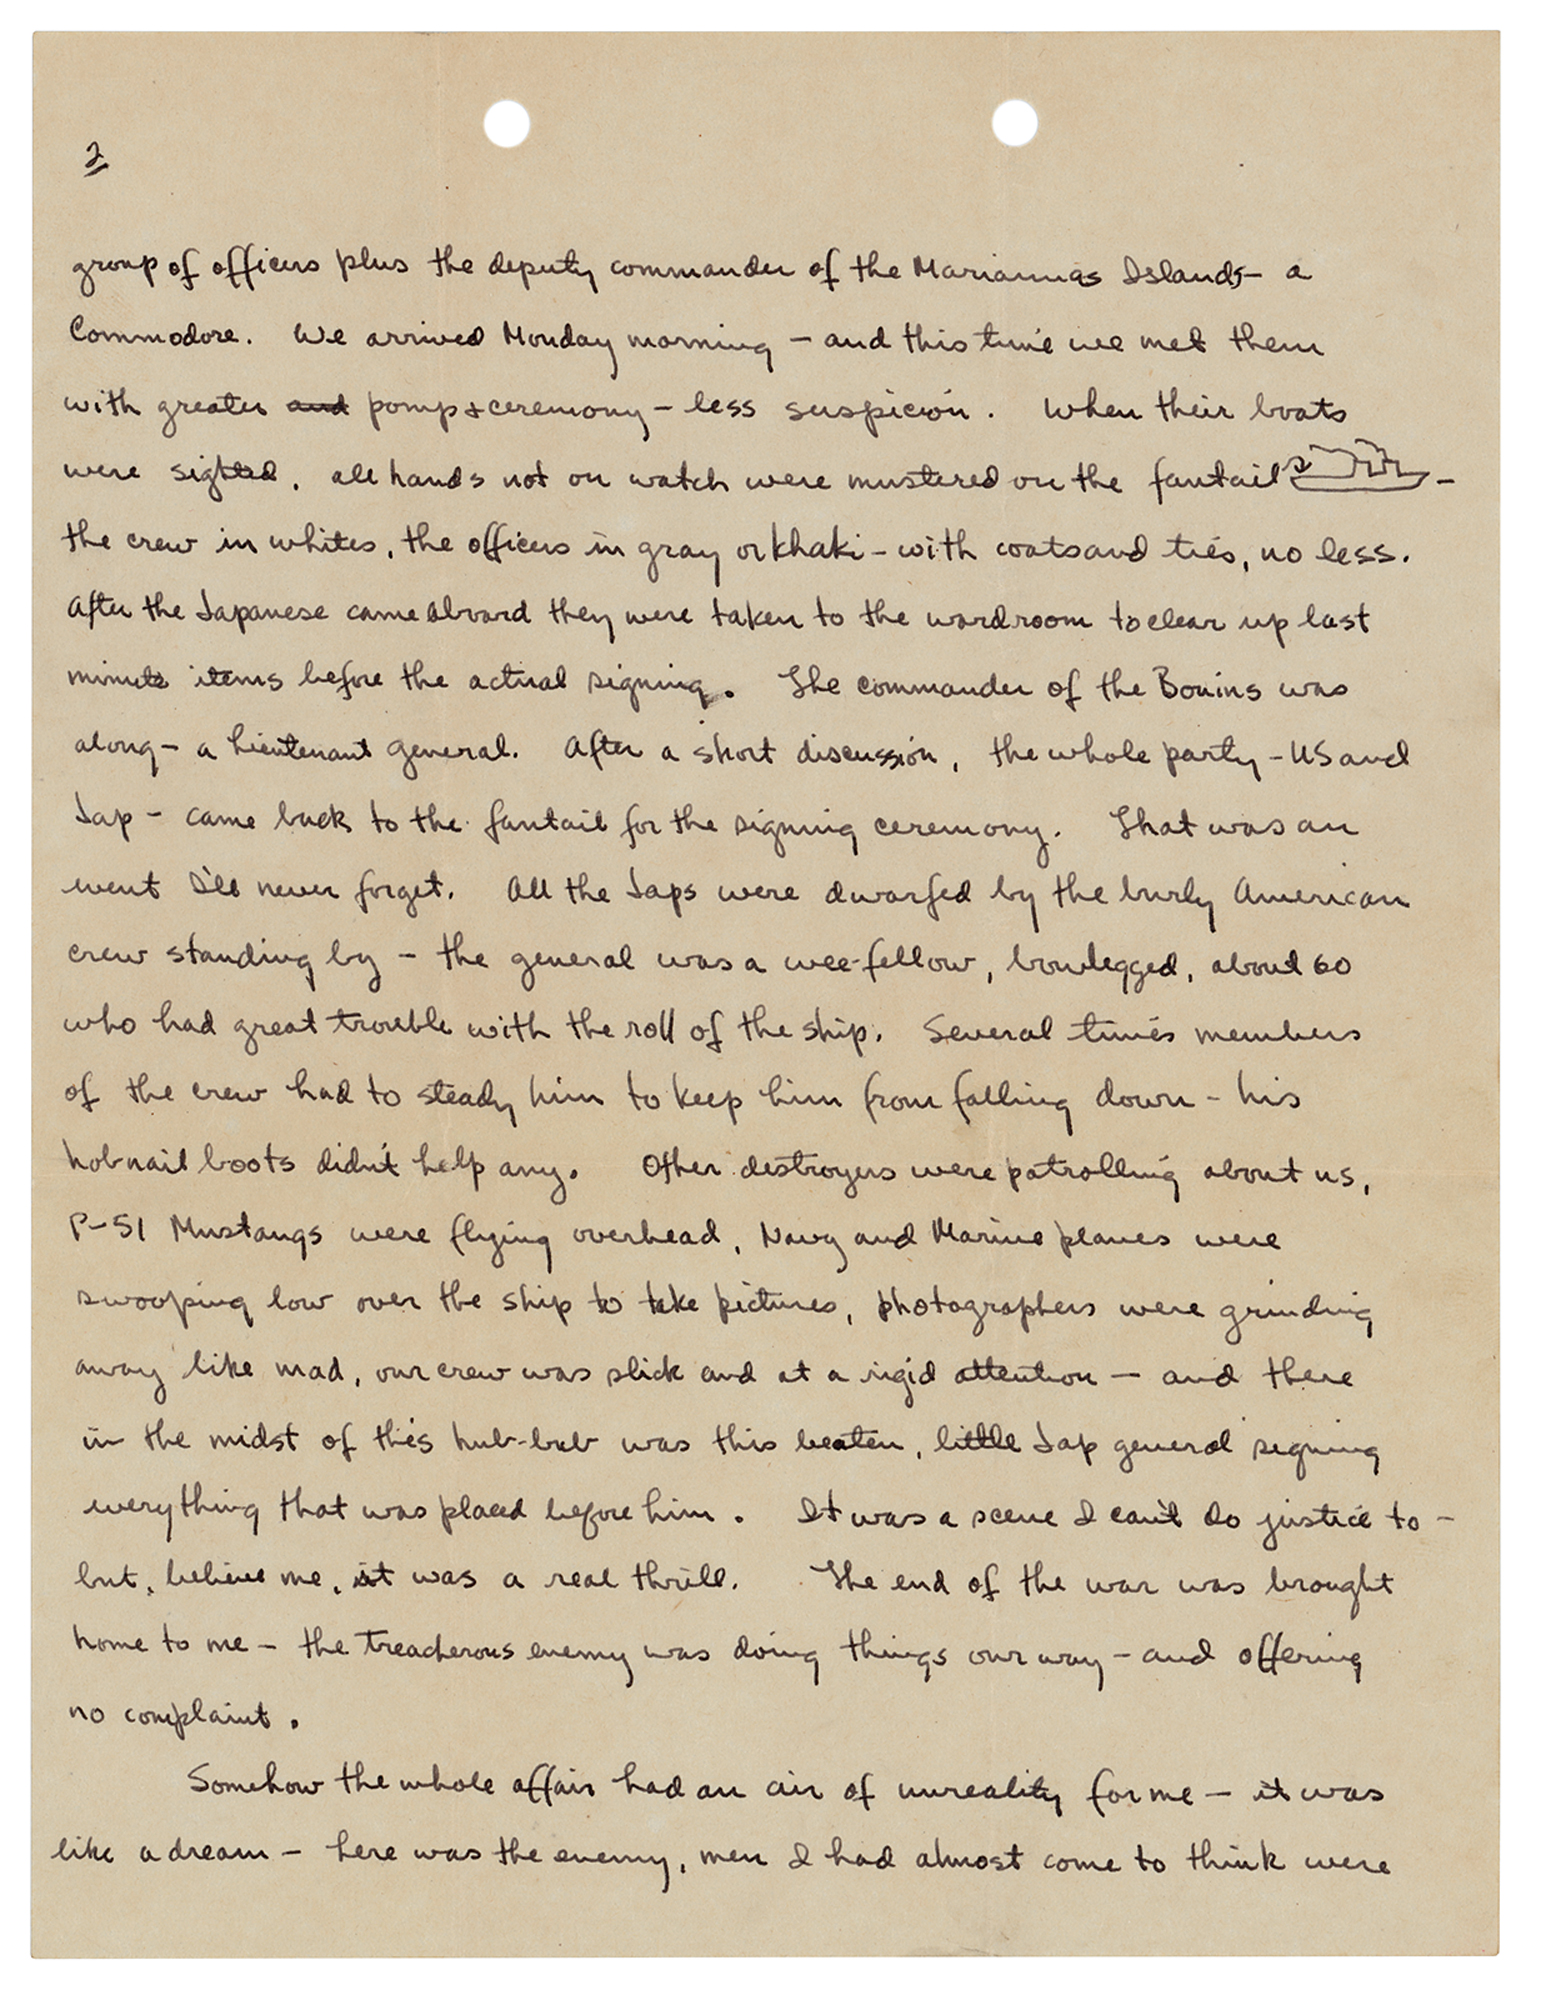 2
group of officers plus the deputy commander of the Mariannas Islands – a
Commodore. We arrived Monday morning – and this time we met them
with greater and pomp & ceremony – less suspicion. When their boats
were sighted, all hands not on watch were mustered on the fantail –
the crew in whites, the officers in gray or khaki – with coats and ties, no less.
After the Japanese came aboard they were taken to the wardroom to clear up last
minute items before the actual signing. The commander of the Bonins was
along – a lieutenant general. After a short discussion, the whole party – US and
Jap – came back to the fantail for the signing ceremony. That was an
event I'll never forget. All the Japs were dwarfed by the burly American
crew standing by – the general was a wee fellow, bowlegged, about 60
who had great trouble with the roll of the ship. Several times members
of the crew had to steady him to keep him from falling down – his
hobnail boots didn't help any. Other destroyers were patrolling about us,
P-51 Mustangs were flying overhead, Navy and Marine planes were
swooping low over the ship to take pictures, photographers were grinding
away like mad, our crew was slick and at a rigid attention – and there
in the midst of this hub-bub was this beaten, little Jap general signing
everything that was placed before him. It was a scene I can't do justice to –
but, believe me, it was a real thrill. The end of the war was brought
home to me – the treacherous enemy was doing things our way – and offering
no complaint.
Somehow the whole affair had an air of unreality for me – it was
like a dream – here was the enemy, men I had almost come to think were